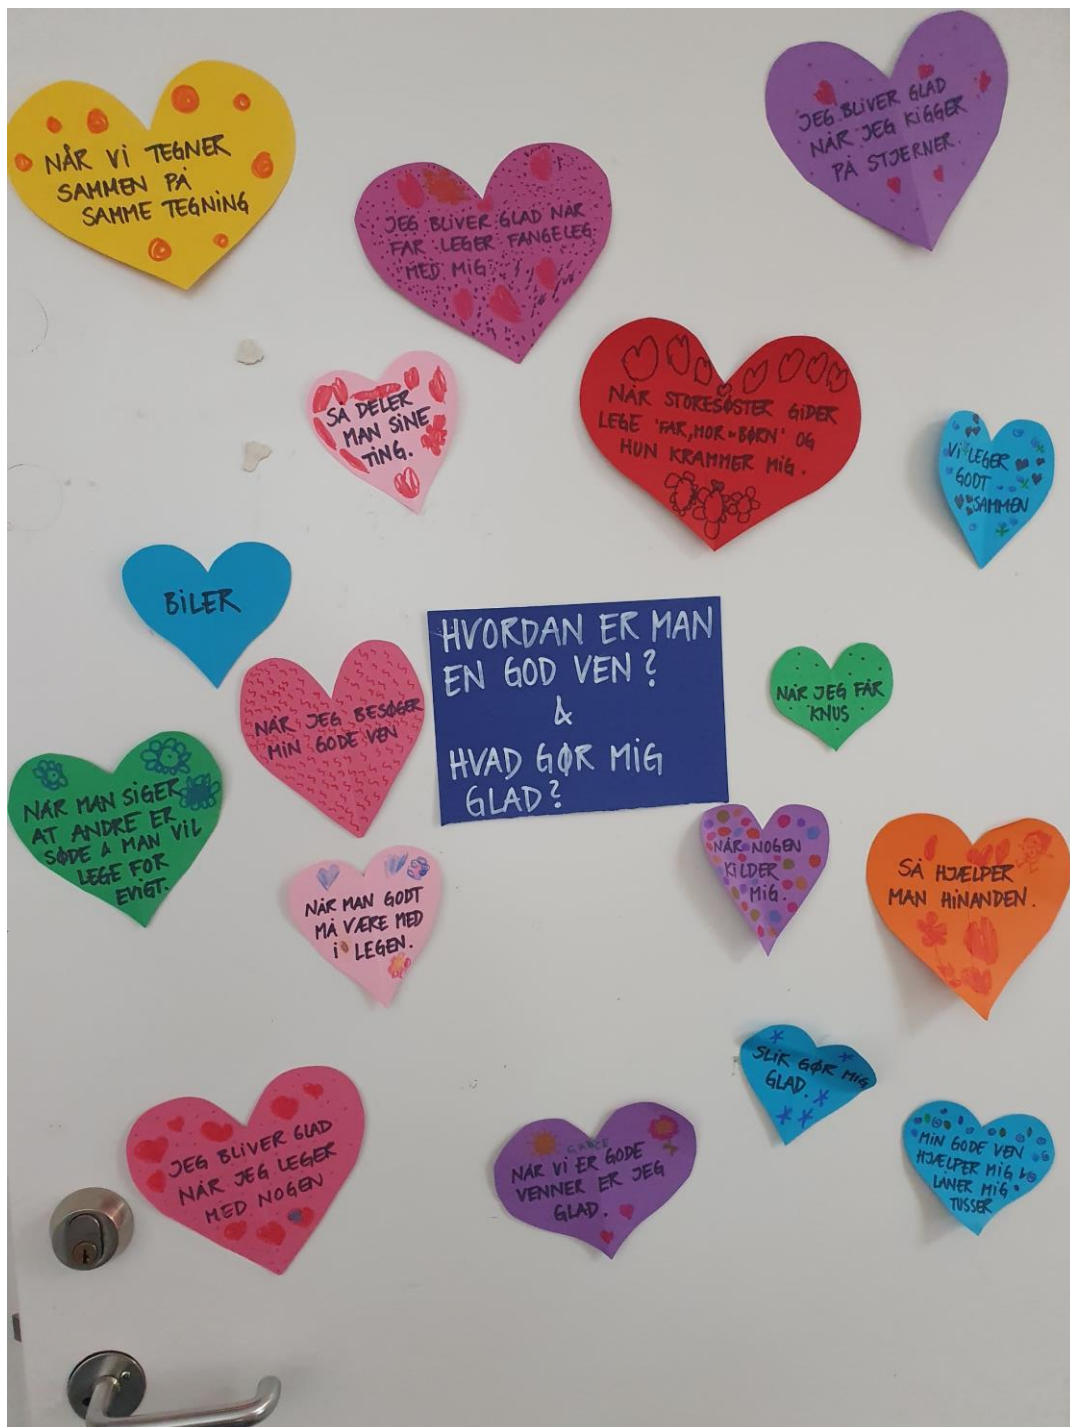 NÅR VI TEGNER
SAMMEN PÅ
SAMME TEGNING
JEG BLIVER GLAD
NÅR JEG KIGGER
PÅ STJERNER.
JEG BLIVER GLAD NÅR
FAR LEGER FANGELEG
MED MIG
SÅ DELER
MAN SINE
TING.
NÅR STORESØSTER GIDER
LEGE "FAR, MOR & BØRN" OG
HUN KRAMMER MIG.
VI LEGER
GODT
SAMMEN
BILER
HVORDAN ER MAN
EN GOD VEN?
&
HVAD GØR MIG
GLAD?
NÅR JEG FÅR
KNUS
NÅR JEG BESØGER
MIN GODE VEN
NÅR MAN SIGER
AT ANDRE ER
SØDE & MAN VIL
LEGE FOR
EVIGT.
NÅR MAN GODT
MÅ VÆRE MED
I LEGEN.
NÅR NOGEN
KILDER
MIG.
SÅ HJÆLPER
MAN HINANDEN.
SLIK GØR MIG
GLAD.
JEG BLIVER GLAD
NÅR JEG LEGER
MED NOGEN
NÅR VI ER GODE
VENNER ER JEG
GLAD.
MIN GODE VEN
HJÆLPER MIG &
LÅNER MIG
TUSSER